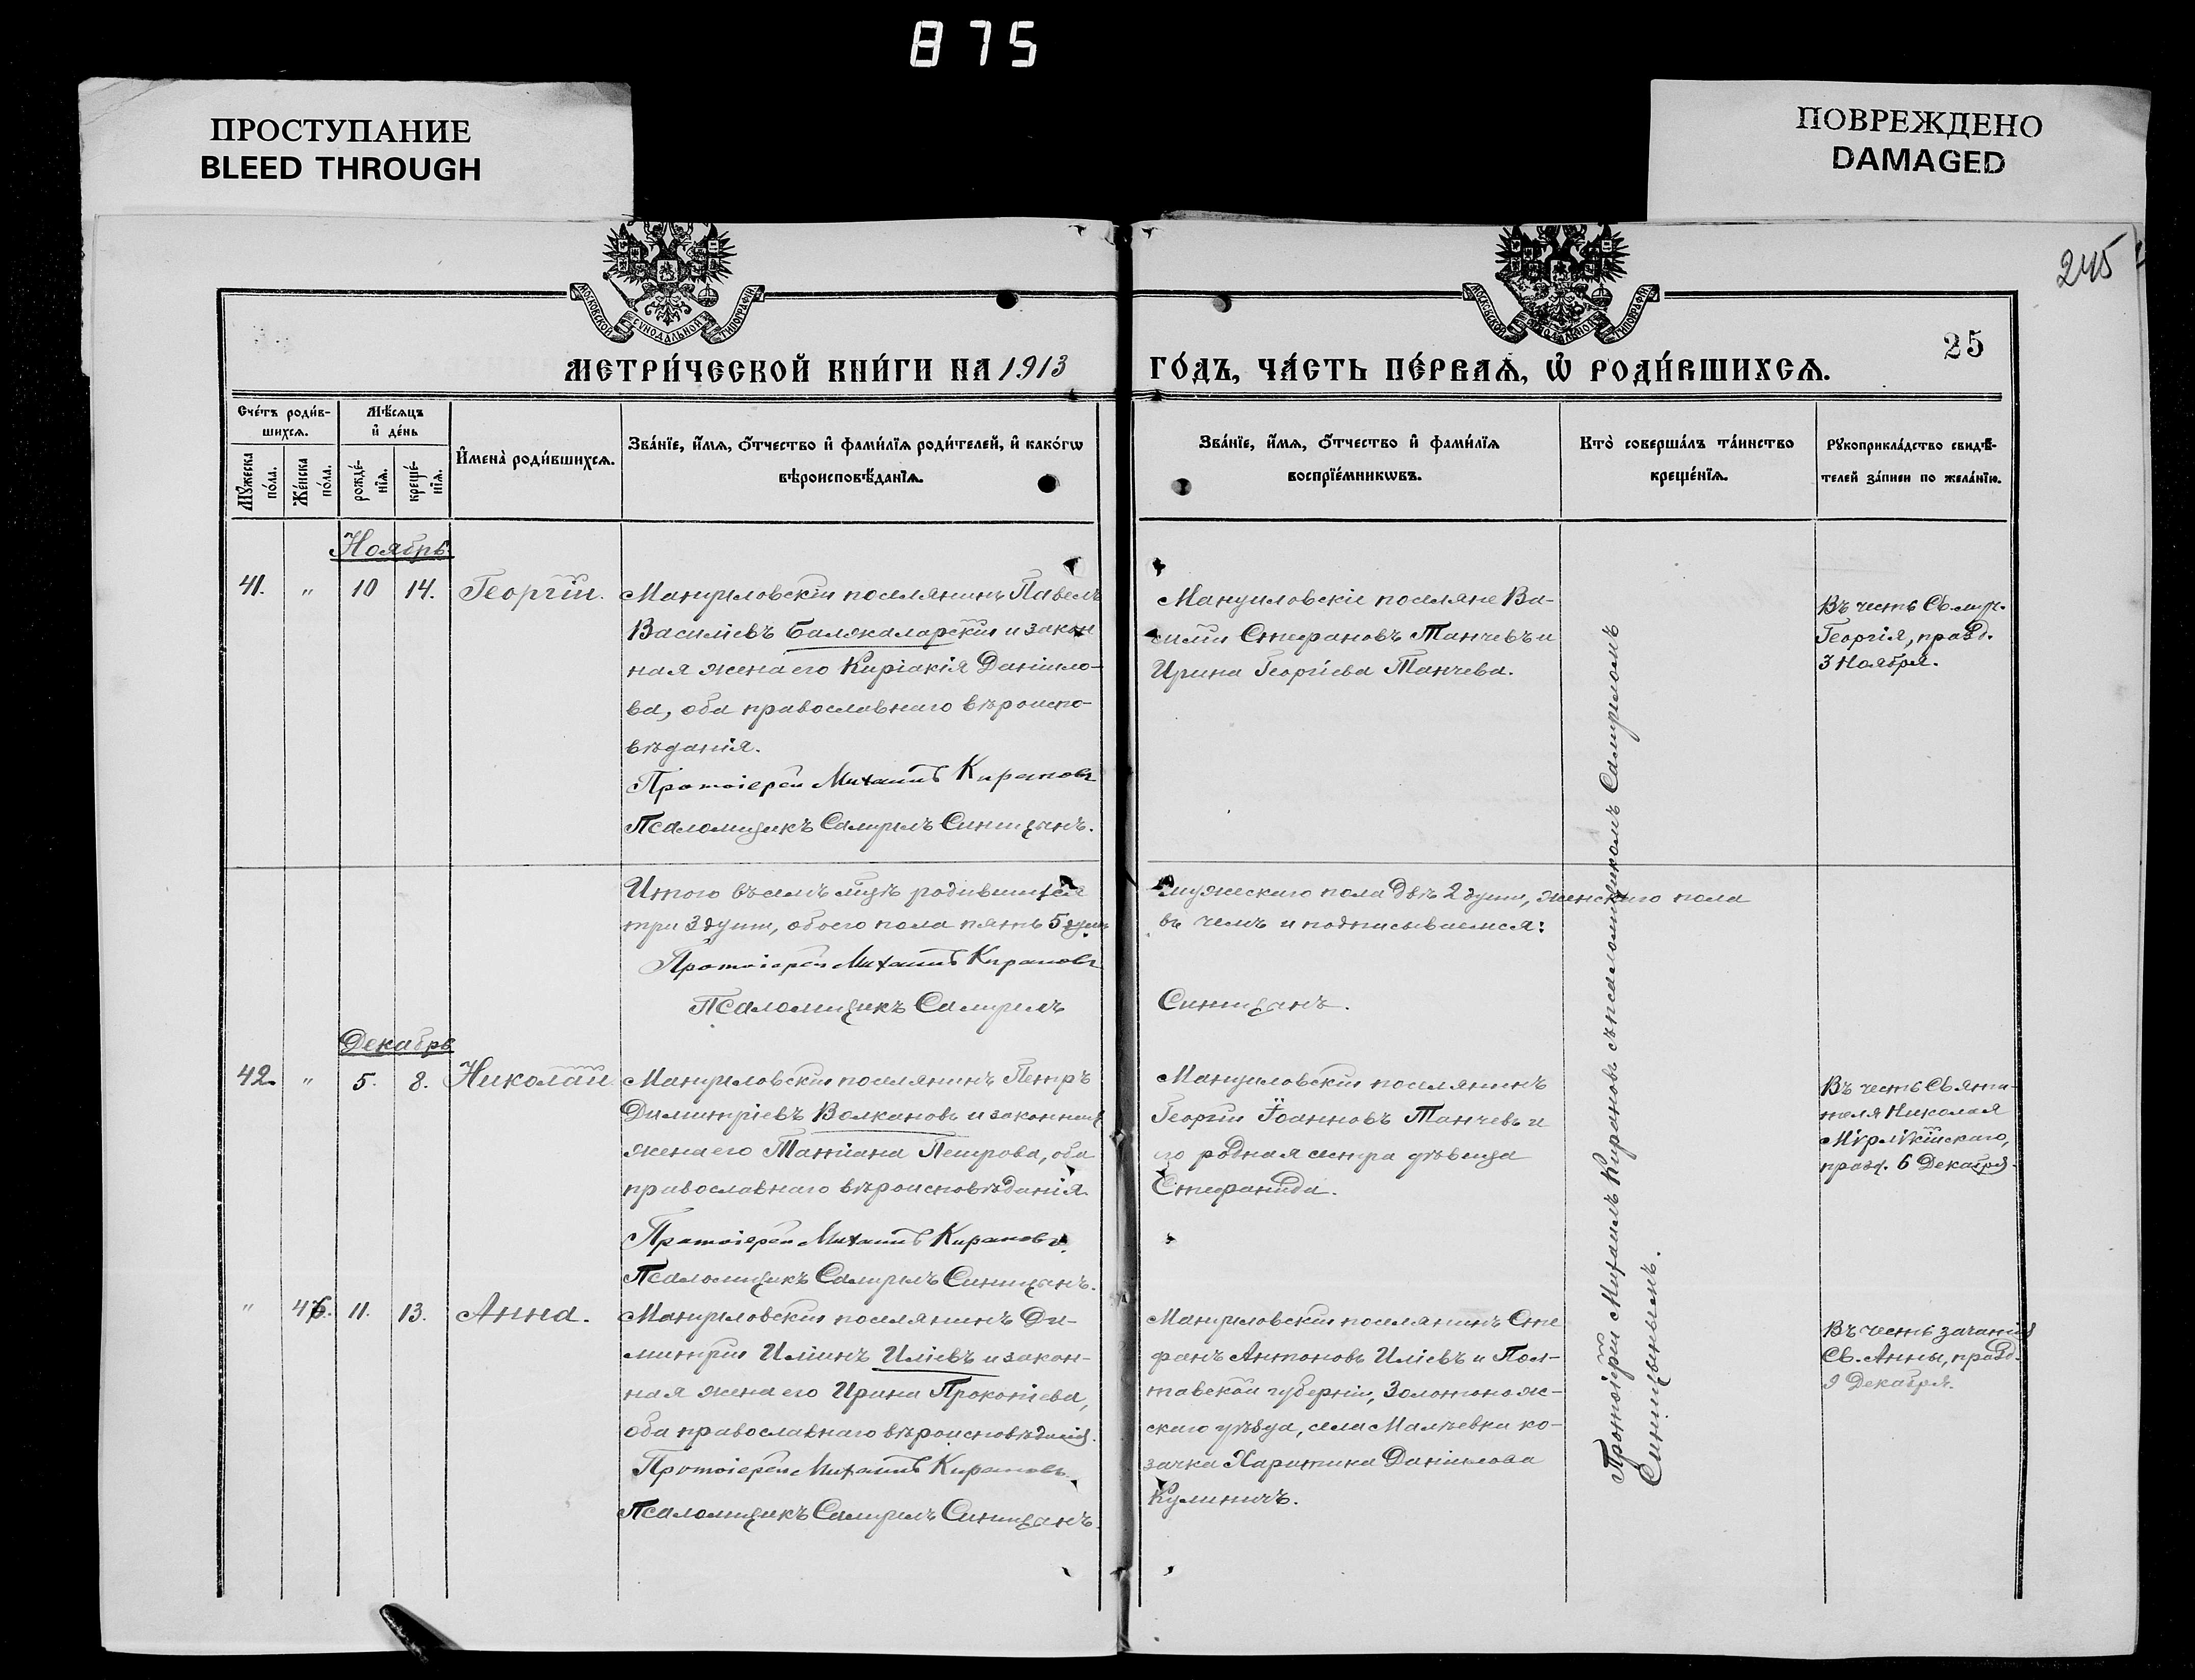 875
ПРОСТУПАНИЕ
BLEED THROUGH
ПОВРЕЖДЕНО
DAMAGED
245
25
МОСКОВСКОЙ СѴНОДАЛЬНОЙ ТИПОГРАФІИ
МОСКОВСКОЙ СѴНОДАЛЬНОЙ ТИПОГРАФІИ
МЕТРИ́ЧЕСКОЙ КНИ́ГИ НА 1913
ГО́ДЪ, ЧА́СТЬ ПЕ́РВАѦ, Ѽ РОДИ́ВШИХСѦ.
Сче́тъ роди́в-
шихсѧ.
Мꙋ́жеска по́ла.
Же́нска по́ла.
Мѣ́сѧцъ
и҆ де́нь
рожде́-
нїѧ.
креще́-
нїѧ.
И҆мена̀ роди́вшихсѧ.
Зва́нїе, и҆́мѧ, ѻ҆́тчество и҆ фами́лїѧ роди́телей, и҆ како́гѡ
вѣроисповѣ́данїѧ.
Зва́нїе, и҆́мѧ, ѻ҆́тчество и҆ фами́лїѧ
воспрїе́мникѡвъ.
Кто̀ соверша́лъ та́инство
креще́нїѧ.
Рꙋкоприкла́дство свидѣ́-
телей за́писи по жела́нїю.
Ноябрь
41. " 10 14. Георгій.
Мануиловскій поселянинъ Павелъ
Василіевъ Балякаларскій и закон
ная жена его Киріакія Даніило-
ва, оба православнаго вѣроиспо-
вѣданія.
Протоіерей Михаилъ Кирановъ
Псаломщикъ Самуилъ Синицынъ.
Мануиловскіе поселяне Ва-
силій Стефановъ Танчевъ и
Ирина Георгіева Танчева.
Въ честь Св. муч.
Георгія, празд.
3 Ноября.
Итого въ семъ мцѣ родившихся
три 3 души, обоего пола пять 5 душъ
Протоіерей Михаилъ Кирановъ
Псаломщикъ Самуилъ
мужескаго пола двѣ 2 души, женскаго пола
въ чемъ и подписываемся:
Синицынъ.
Декабрь
42. " 5. 8. Николай
Мануиловскій поселянинъ Петръ
Димитріевъ Волкановъ и законная
жена его Татіана Петрова, оба
православнаго вѣроисповѣданія.
Протоіерей Михаилъ Кирановъ.
Псаломщикъ Самуилъ Синицынъ.
Мануиловскій поселянинъ
Георгій Іоанновъ Танчевъ и
его родная сестра дѣвица
Стефанида.
Въ честь Святи-
теля Николая
Мѵрликійскаго,
празд. 6 Декабря.
" 46. 11. 13. Анна.
Мануиловскій поселянинъ Ди-
митрій Иліинъ Иліевъ и закон-
ная жена его Ирина Прокопіева,
оба православнаго вѣроисповѣданія.
Протоіерей Михаилъ Кирановъ.
Псаломщикъ Самуилъ Синицынъ.
Мануиловскій поселянинъ Сте
фанъ Антоновъ Иліевъ и Пол-
тавской губерніи, Золотонож-
скаго уѣзда, села Мальевки ко-
зачка Харитина Даніилова
Кулиничъ.
Въ честь зачатія
Св. Анны, празд.
9 Декабря.
Протоіерей Михаилъ Кирановъ съ псаломщикомъ Самуиломъ
Синицынымъ.